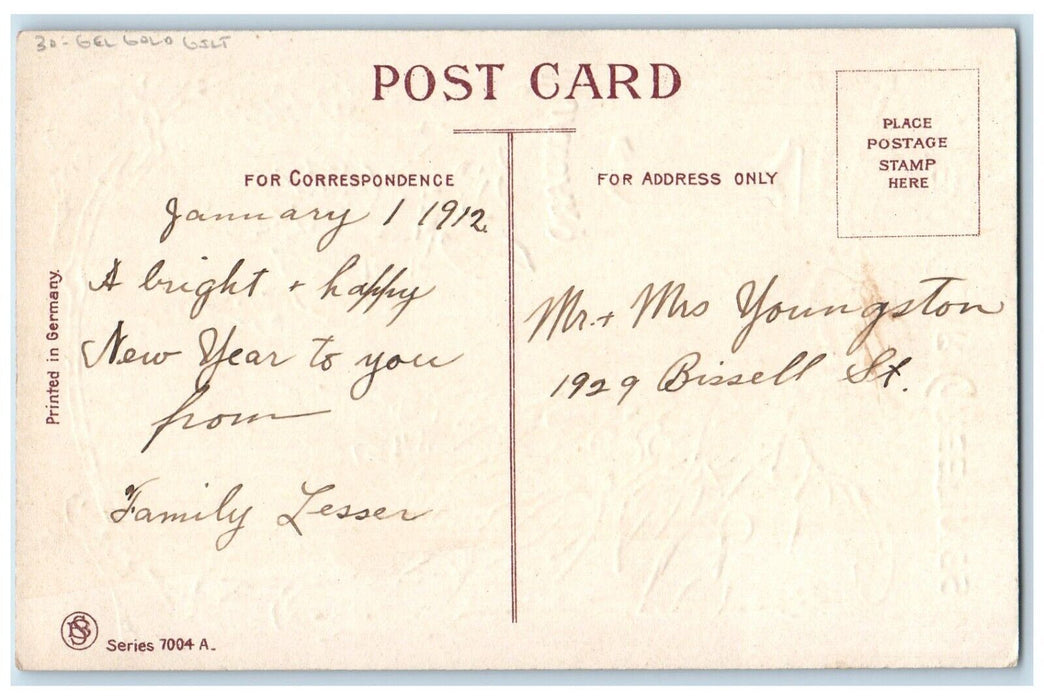 30- GEL GOLD GILT
POST CARD
PLACE
POSTAGE
STAMP
HERE
FOR CORRESPONDENCE
FOR ADDRESS ONLY
January 1 1912.
A bright + happy
New Year to you
from
Family Lesser
Mr. + Mrs Youngston
1929 Bissell St.
Printed in Germany.
Series 7004 A.